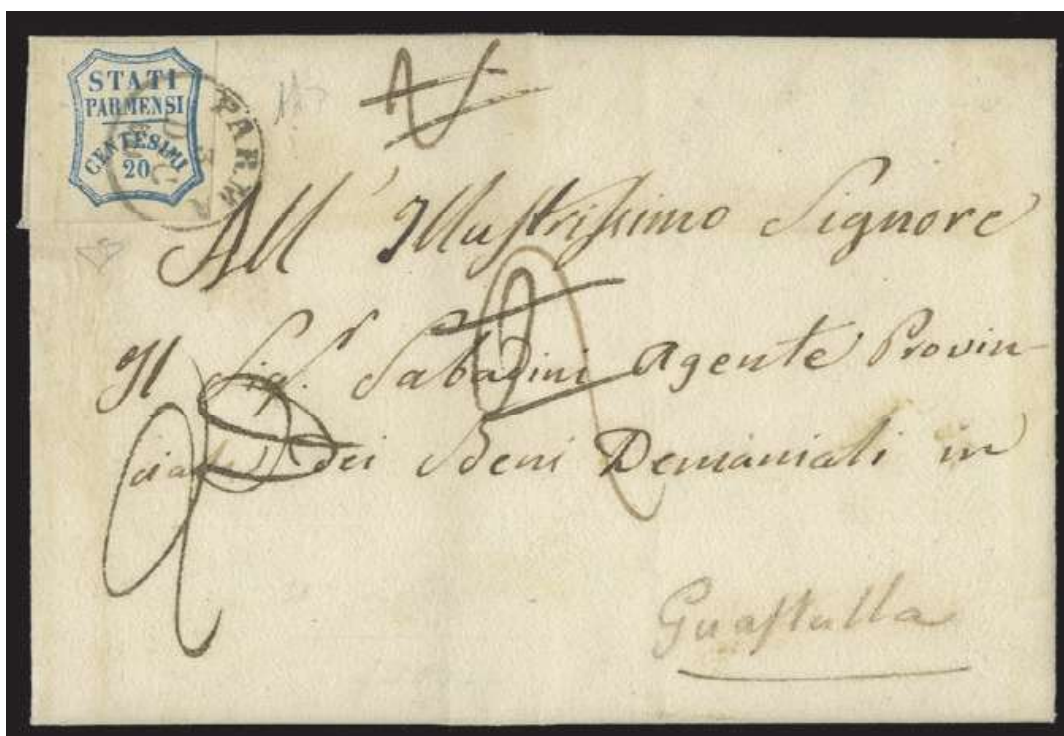 STATI
PARMENSI
CENTESIMI
20
PARMA
All' Illustrissimo Signore
Il Sig.r Sabadini Agente Provin-
ciale dei Beni Demaniali in
Guastalla